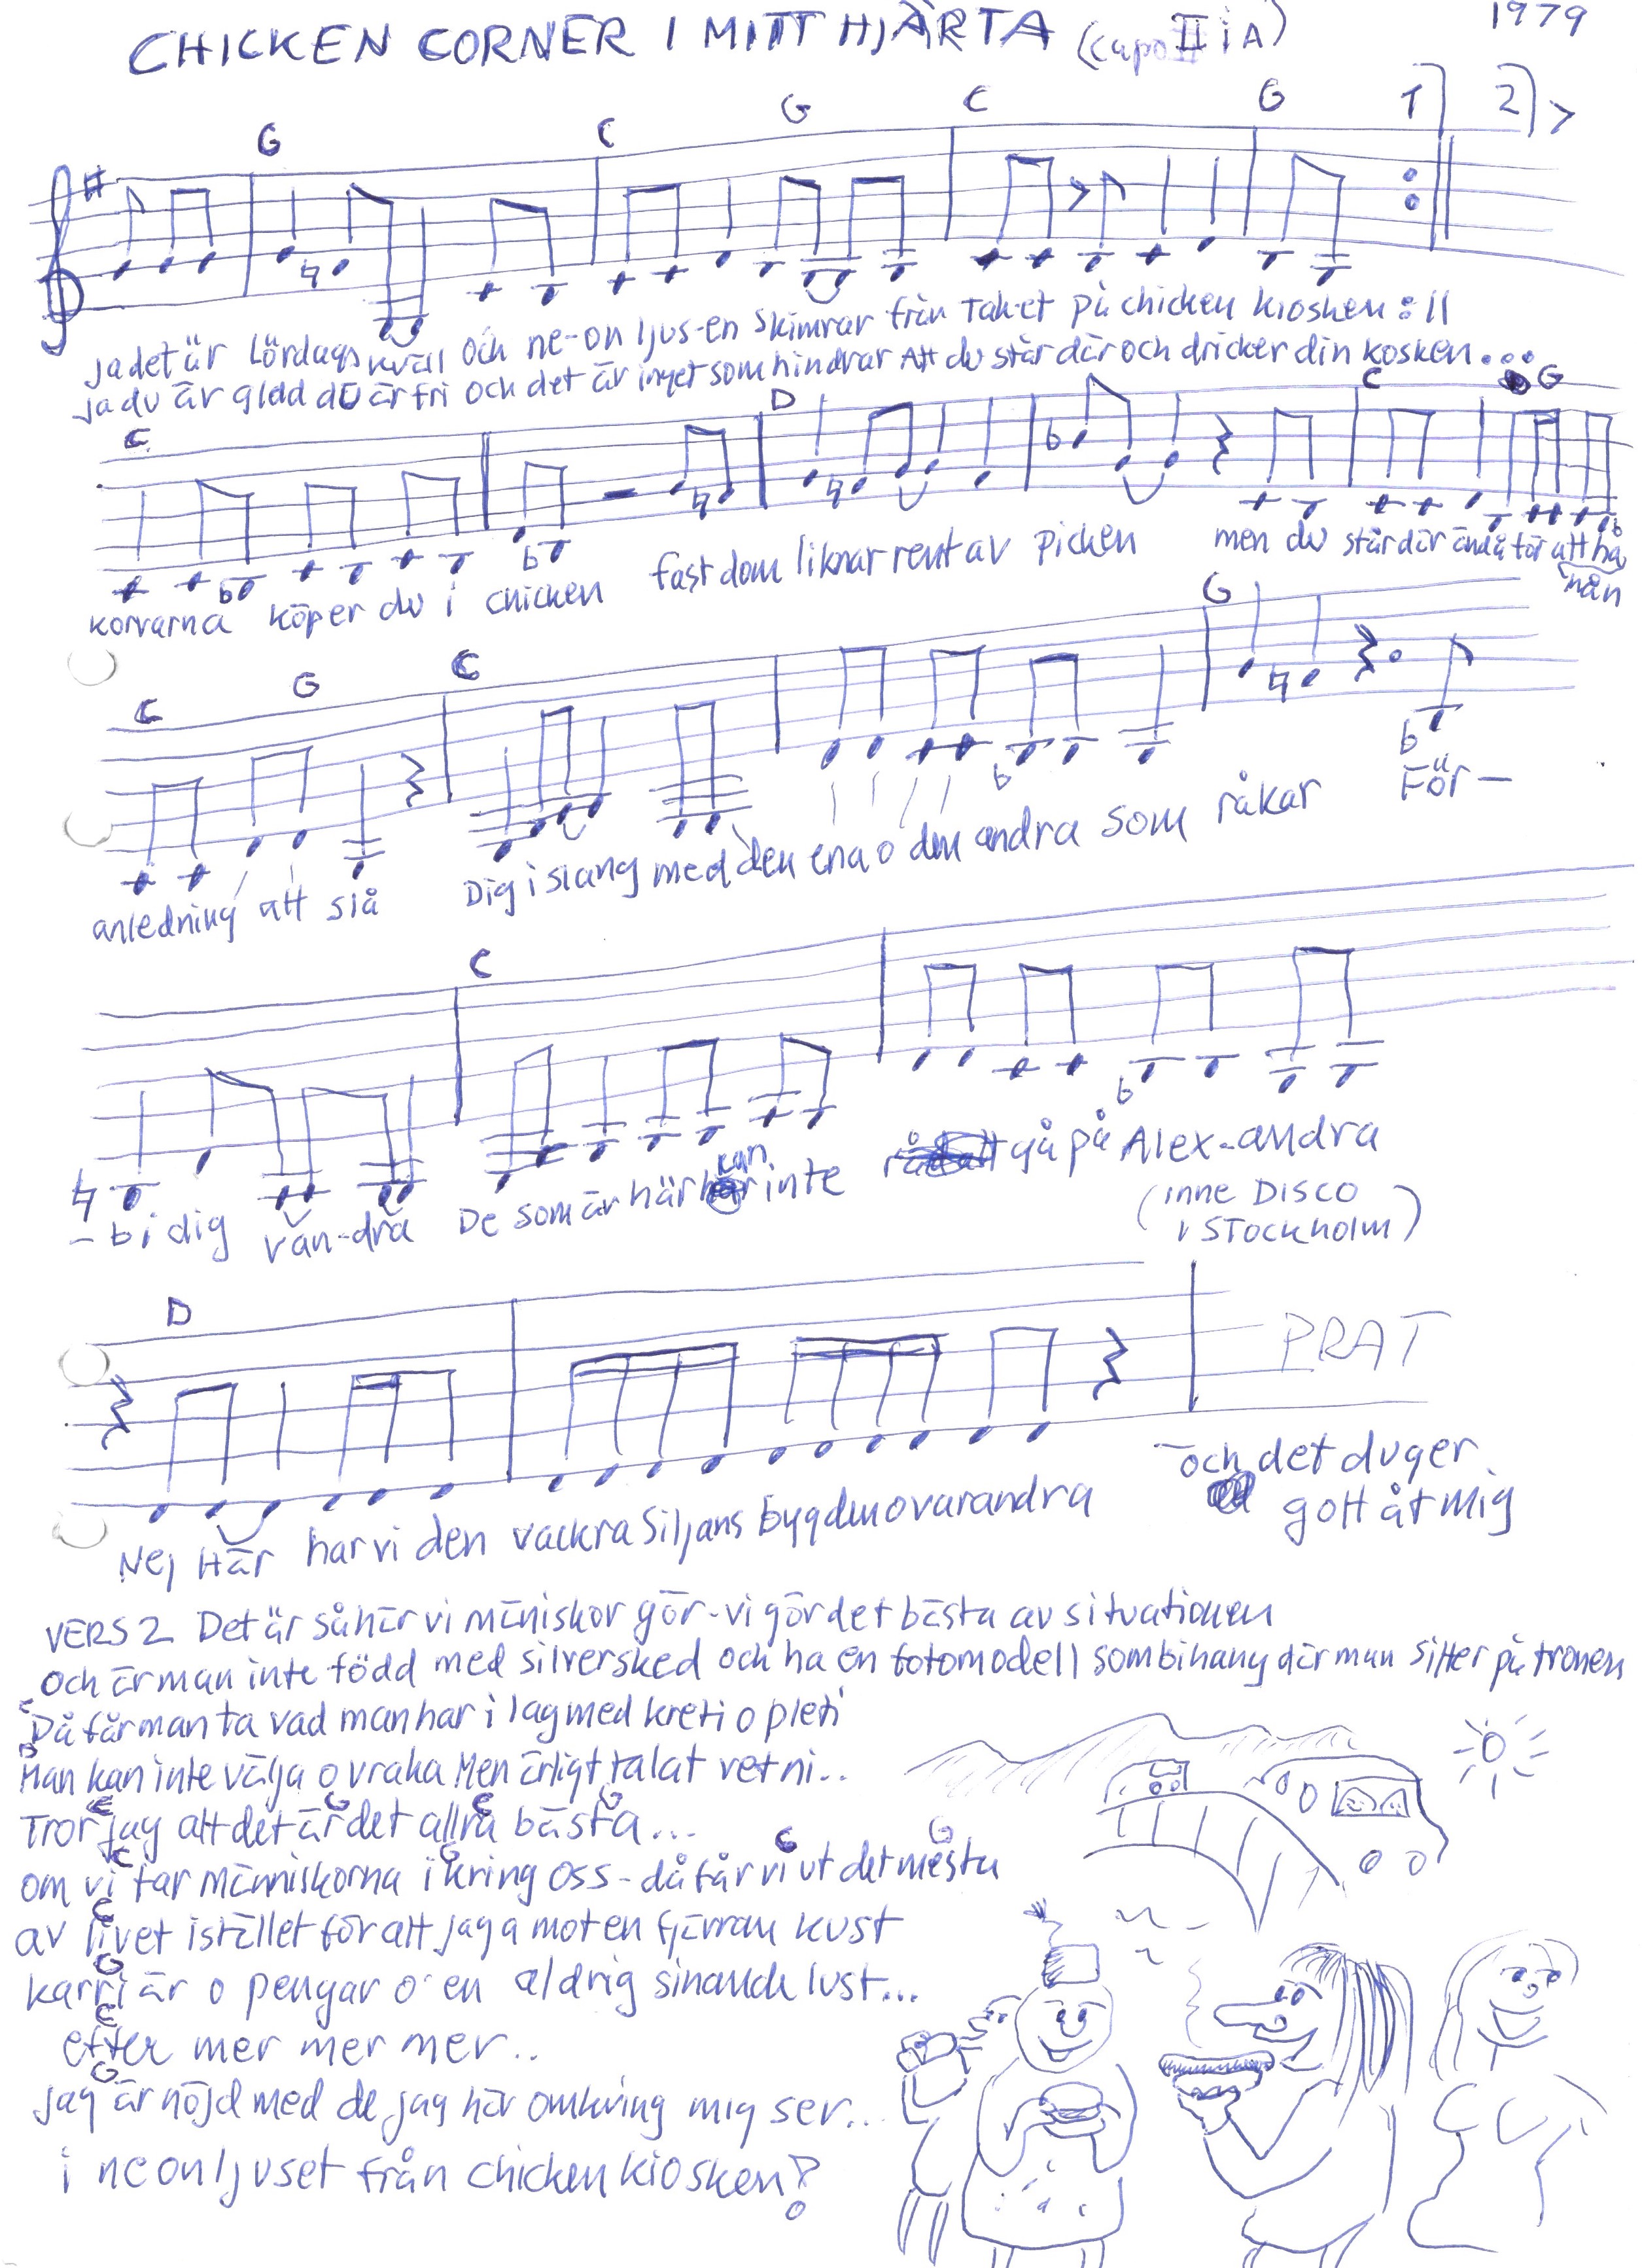 CHICKEN CORNER I MITT HJÄRTA (Capo II i A) 1979
G C G C G 1 2
Ja det är Lördagskväll Och ne-on ljus-en Skimrar från Tak-et på chicken kiosken :||
Ja du är glad du är fri och det är inget som hindrar Att du står där och dricker din kosken...
C D C G
korvarna köper du i chicken fast dom liknar rent av picken men du står där ändå för att ha
nån
C G C G
anledning att slå Dig i slang med den ena o den andra som råkar För-
C
-bi dig van-dra De som är här kan inte gå på Alex-andra
(inne DISCO
i STOCKHOLM)
D PRAT
Nej Här har vi den vackra Siljans bygden o varandra och det duger
gott åt mig
VERS 2 Det är såhär vi mäniskor gör - vi gör det bästa av situationen
och är man inte född med silversked och ha en fotomodell som bihang där man sitter på tronen
C
Då får man ta vad man har i lag med kreti o pleti
D
Man kan inte välja o vraka Men ärligt talat vet ni..
C G C G
Tror jag att det är det allra bästa...
C G C G
om vi tar människorna ikring oss - då får vi ut det mesta
C
av livet istället för att jaga mot en fjärran kust
G
karriär o pengar o en aldrig sinande lust...
C
efter mer mer mer..
G
jag är nöjd med de jag här omkring mig ser...
i neonljuset från chicken kiosken!